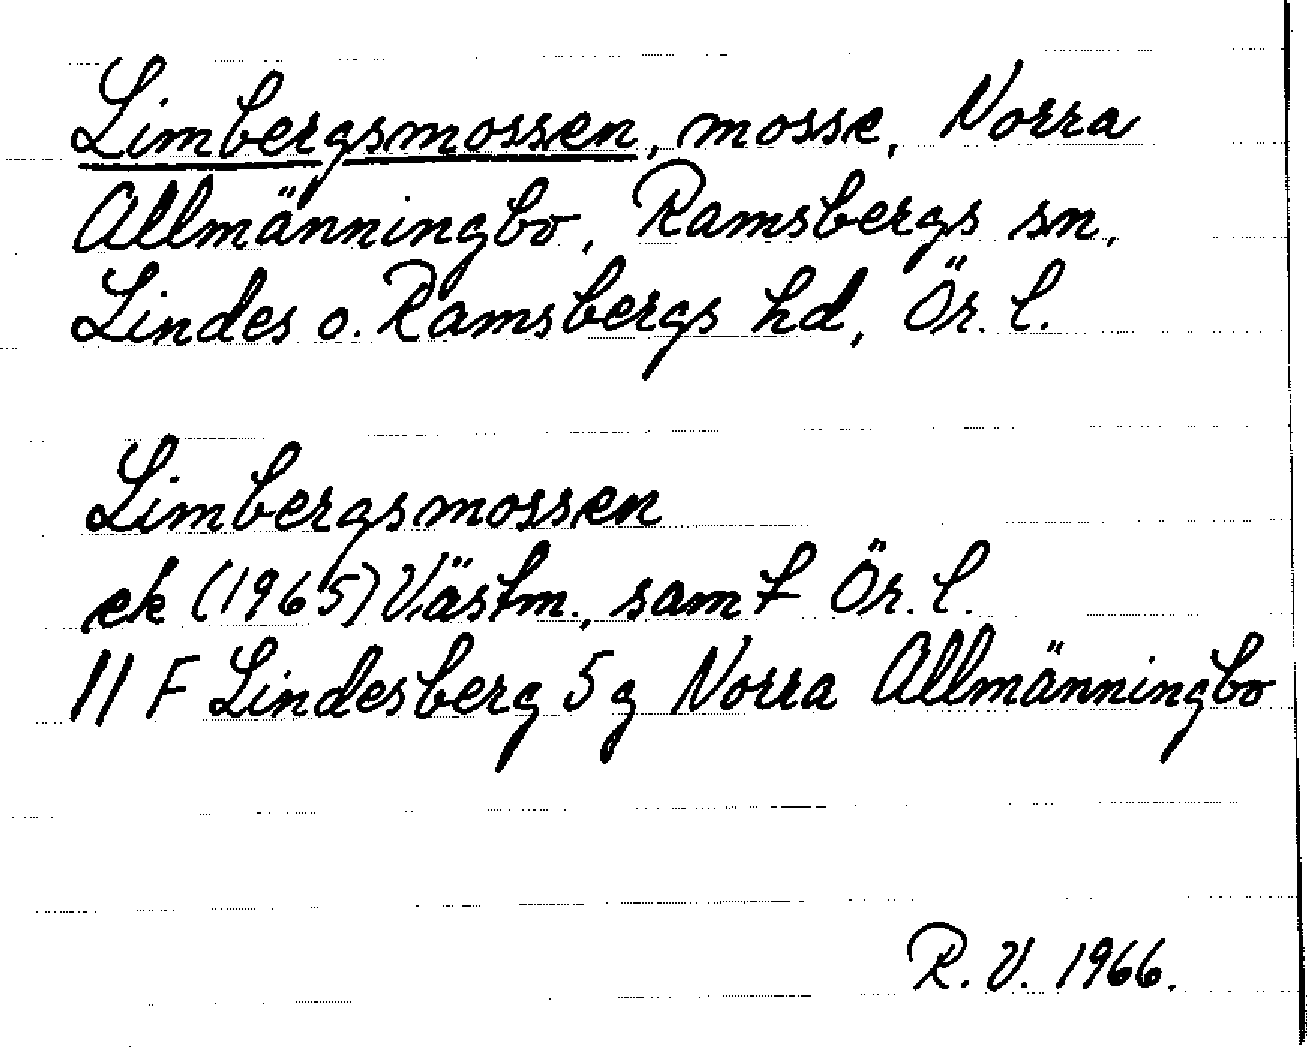 Limbergsmossen, mosse, Norra
Allmänningbo, Ramsbergs sn,
Lindes o. Ramsbergs hd, Ör. l.
Limbergsmossen
ek (1965) Västm., samt Ör. l.
11 F Lindesberg 5 g Norra Allmänningbo
R. V. 1966.